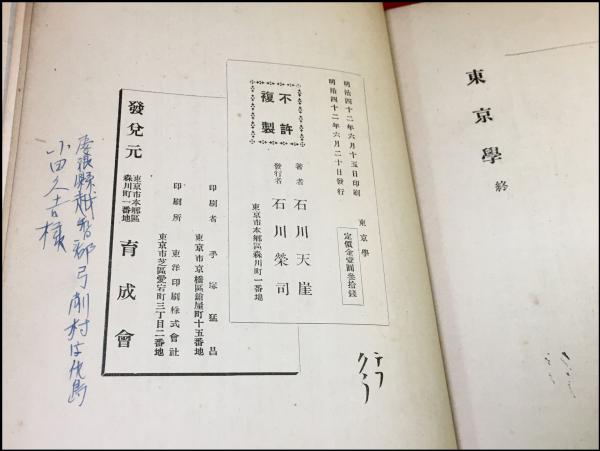 東京學 終
明治四十二年六月十五日印刷
明治四十二年六月二十日發行
東京學
定價金壹圓叄拾錢
不許
複製
著者 石川天崖
發行者 石川榮司
東京市本鄉區森川町一番地
印刷者 手塚猛昌
東京市京橋區築屋町十五番地
印刷所 東洋印刷株式會社
東京市芝區愛宕町三丁目二番地
發兌元
東京市本鄉區
森川町一番地
育成會
愛媛縣越智郡弓削村
小田久吉様